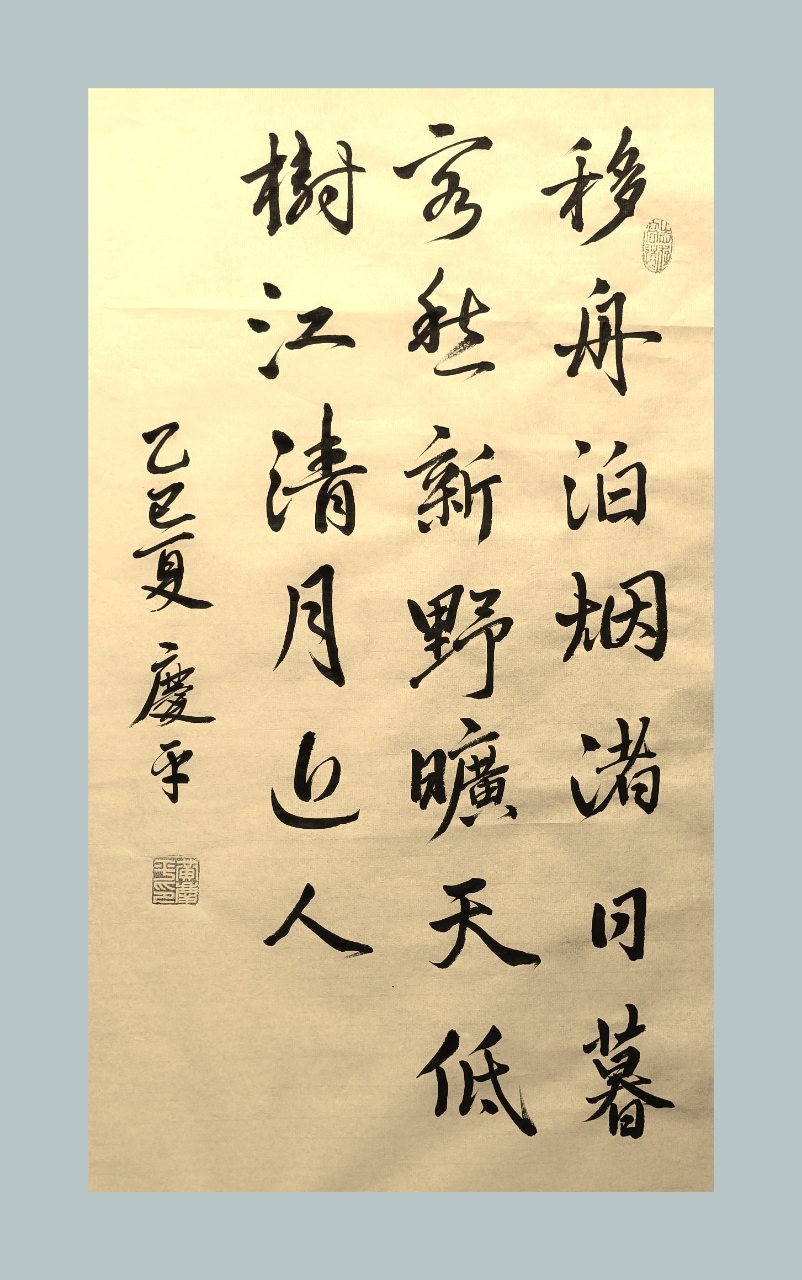 移舟泊烟渚日暮
客愁新野曠天低
樹江清月近人
乙巳夏 慶平